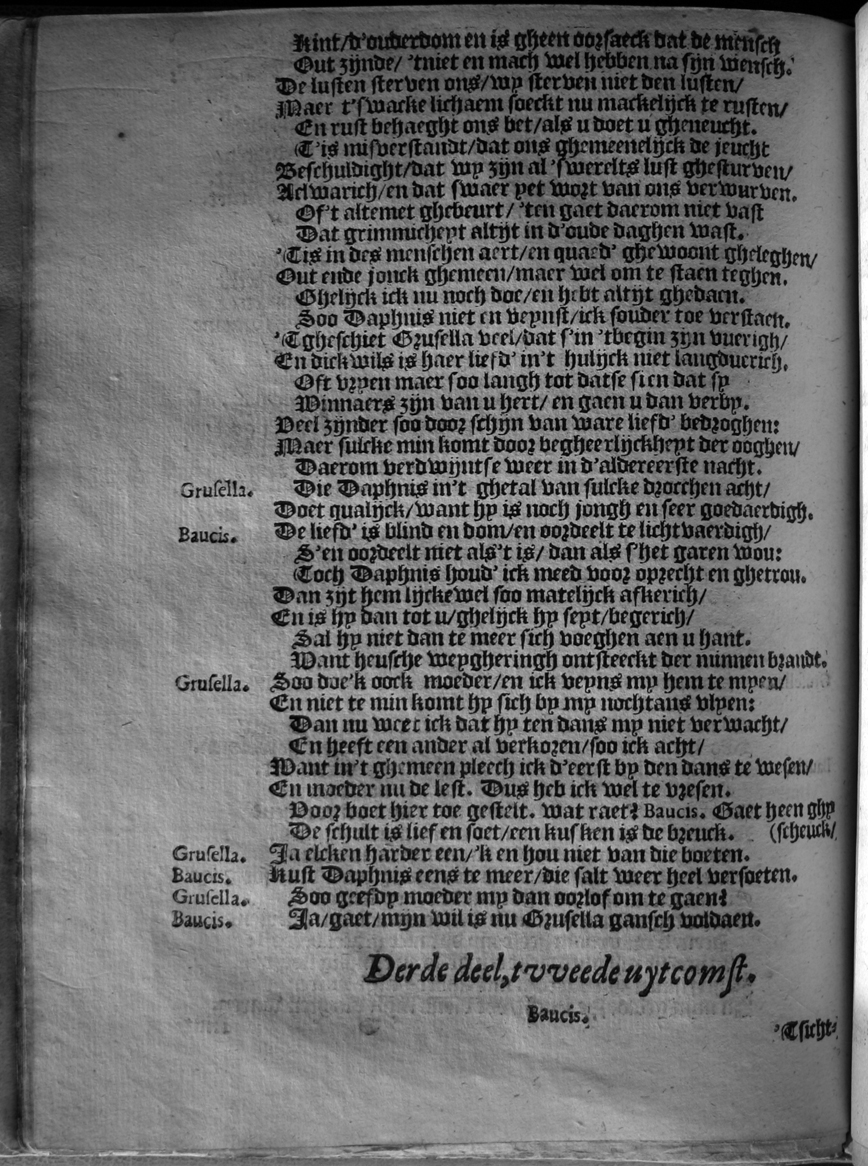 Kint/d'ouderdom en is gheen oorsaeck dat de mensch
Out zijnde/ 'tniet en mach wel hebben na sijn wensch.
De lusten sterven ons/wy sterven niet den lusten/
Maer t'swacke lichaem soeckt nu mackelijck te rusten/
En rust behaeght ons bet/als u doet u gheneucht.
T'is misverstandt/dat ons ghemeenelijck de jeucht
Beschuldight/dat wy zijn al 'swerelts lust ghesturven/
Aelwarich/en dat swaer yet wort van ons verwurven.
Of't altemet ghebeurt/ 'ten gaet daerom niet vast
Dat grimmicheyt altijt in d'oude daghen wast.
'Tis in des menschen aert/en quaed' ghewoont gheleghen/
Out ende jonck ghemeen/maer wel om te staen teghen.
Ghelijck ick nu noch doe/en hebt altijt ghedaen.
Soo Daphnis niet en veynst/ick souder toe verstaen.
'Tgheschiet Grusella veel/dat s'in 'tbegin zijn vuerigh/
En dickwils is haer liefd' in't hulijck niet langduerich.
Oft vryen maer soo langh tot datse sien dat sy
Winnaers zijn van u hert/ en gaen u dan verby.
Veel zijnder soo door schijn van ware liefd' bedroghen:
Maer sulcke min komt door begheerlijckheyt der ooghen/
Daerom verdwijntse weer in d'aldereerste nacht.
Grusella. Die Daphnis in't ghetal van sulcke drocchen acht/
Doet qualijck/want hy is noch jongh en seer goedaerdigh.
Baucis. De liefd' is blind en dom/en oordeelt te lichtvaerdigh/
S'en oordeelt niet als't is/ dan als s'het garen wou:
Toch Daphnis houd' ick meed voor oprecht en ghetrou.
Dan zijt hem lijckewel soo matelijck afkerich/
En is hy dan tot u/ghelijck hy seyt/begerich/
Sal hy niet dan te meer sich voeghen aen u hant.
Want heusche weygheringh ontsteeckt der minnen brandt.
Grusella. Soo doe'k oock moeder/en ick veyns my hem te myen/
En niet te min komt hy sich by my nochtans vlyen:
Dan nu weet ick dat hy ten dans my niet verwacht/
En heeft een ander al verkozen/soo ick acht/
Want in't ghemeen pleech ick d'eerst by den dans te wesen/
En moeder nu de lest. Dus heb ick wel te vresen.
Voor boet hier toe gestelt. wat raet? Baucis. Gaet heen ghy
De schult is lief en soet/een kusken is de breuck. (scheuck/
Grusella. Ja elcken harder een/'k en hou niet van die boeten.
Baucis. Kust Daphnis eens te meer/die salt weer heel versoeten.
Grusella. Soo geefdy moeder my dan oorlof om te gaen?
Baucis. Ja/gaet/mijn wil is nu Grusella gansch voldaen.
Derde deel, tvveede uytcomst.
Baucis.
'Tsicht-